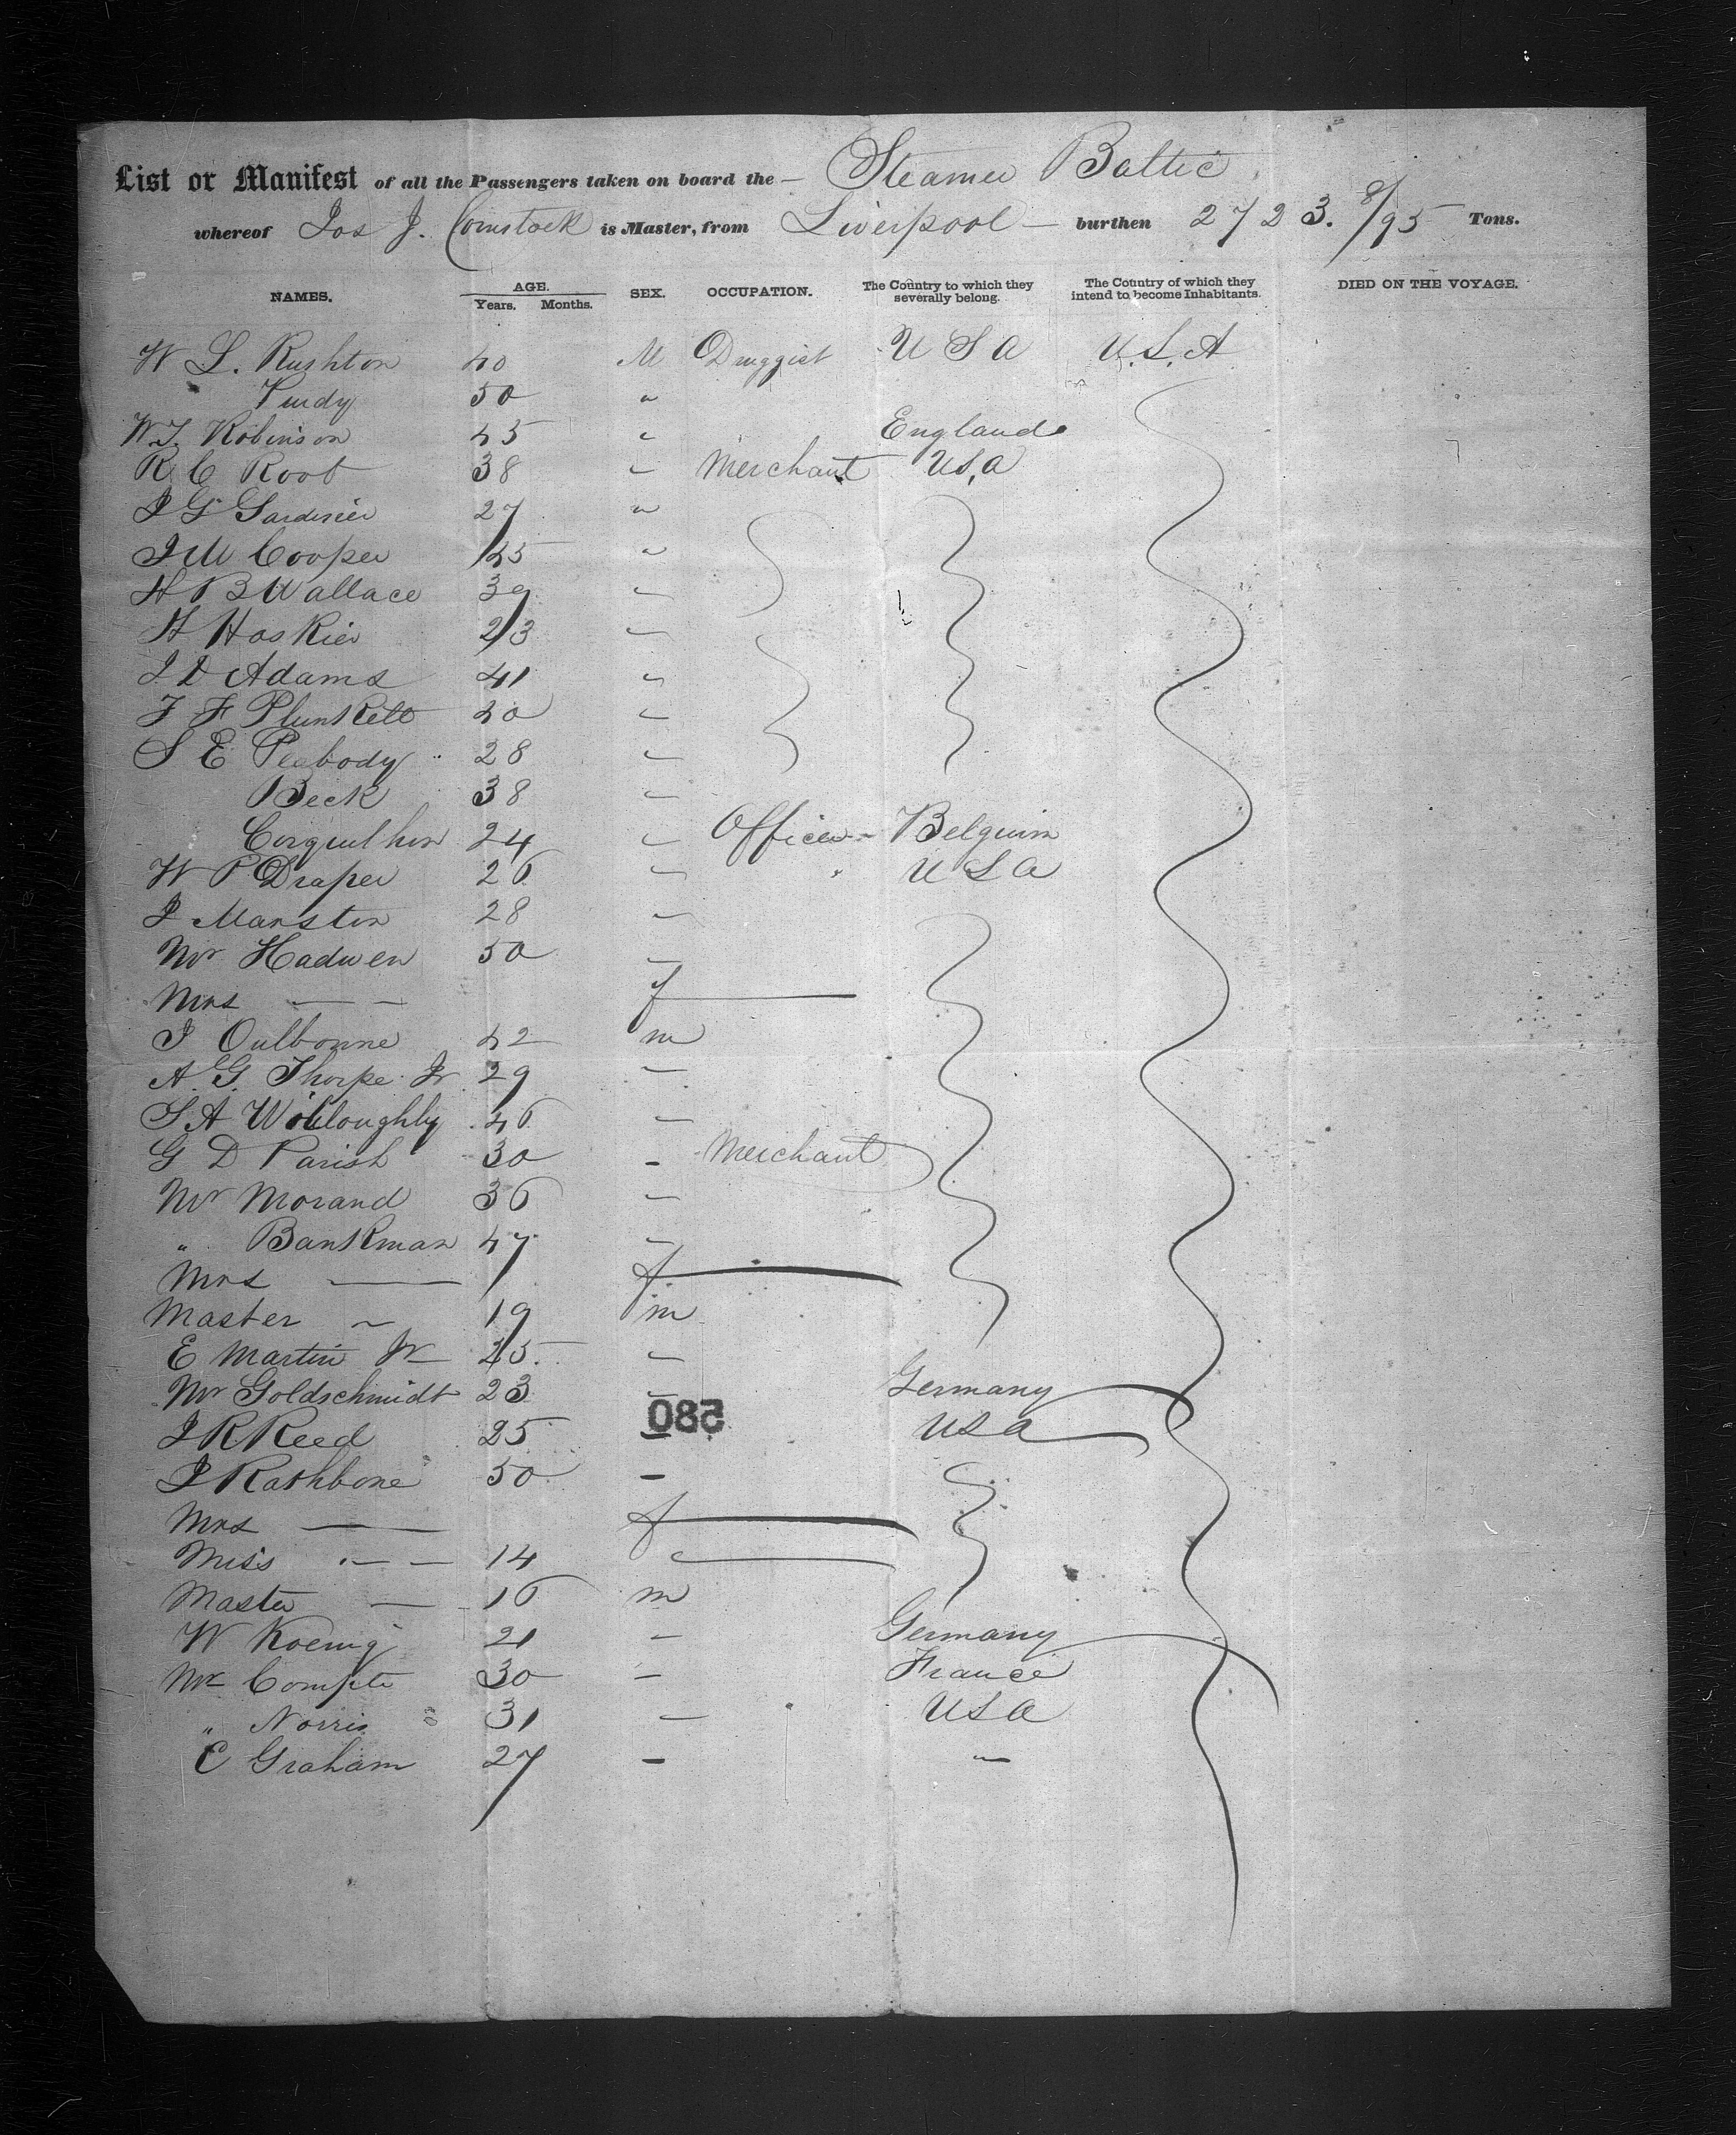 List or Manifest of all the Passengers taken on board the — Steamer Baltic
whereof Jos J. Comstock is Master, from Liverpool — burthen 2723. 8/95 Tons.
NAMES. AGE. Years. Months. SEX. OCCUPATION. The Country to which they severally belong. The Country of which they intend to become Inhabitants. DIED ON THE VOYAGE.
W L. Rushton 40 M Druggist U S A U.S.A
Purdy 50 "
W.T. Robinson 45 " England
R C Root 38 " Merchant U S A
J G Gardinier 27 "
J W Cooper 45 "
H B Wallace 39 "
H Hoskier 23 "
J D Adams 41 "
F F Plunkett 40 "
S E Peabody 28 "
Beck 38 "
24 " Officer - Belguim
W P Draper 26 " " U S A
J Marston 28 "
Mr Hadwen 50 "
Mrs — — f
J Oulbonne 42 m
A. G. Thorpe Jr 29 "
S A Willoughby 46 "
G D Parish 30 " Merchant
Mr Morand 36 "
" Bankman 47 "
Mrs — f
Master ~ 19 m
E Martin Jr 25 "
Mr Goldschmidt 23 " Germany
580
J R Reed 25 " U S A
J Rathbone 50 "
Mrs — — f
Miss — — 14 "
Master — 16 m
W Koenig 21 " Germany
Mr Compte 30 " France
" Norris 31 " U S A
E Graham 27 " "